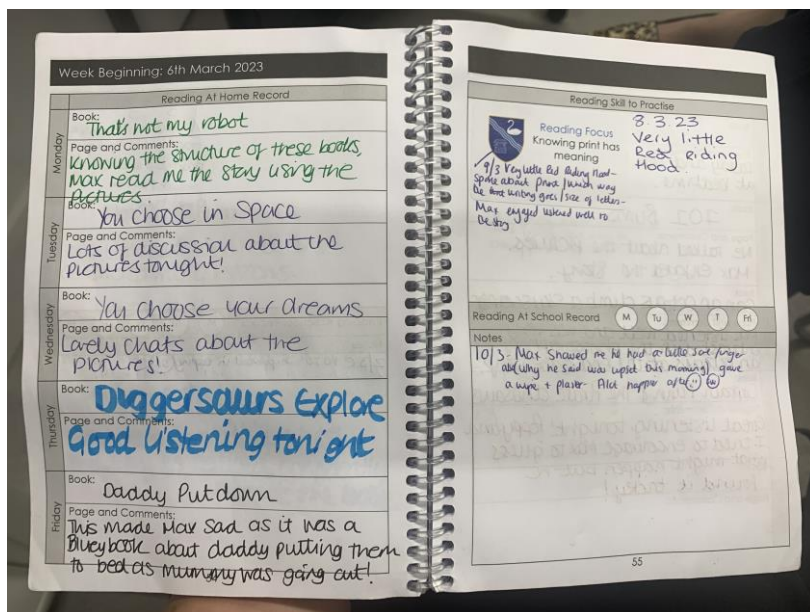 Week Beginning: 6th March 2023
Reading At Home Record
Monday
Book:
That's not my robot
Page and Comments:
Knowing the structure of these books,
Max read me the story using the
pictures.
Tuesday
Book:
You choose in Space
Page and Comments:
Lots of discussion about the
pictures tonight!
Wednesday
Book:
You choose your dreams
Page and Comments:
Lovely chats about the
pictures!
Thursday
Book:
Diggersaurs Explore
Page and Comments:
Good listening tonight
Friday
Book:
Daddy Putdown
Page and Comments:
This made Max sad as it was a
Bluey book about daddy putting them
to bed as mummy was going out!
Reading Skill to Practise
Reading Focus
Knowing print has
meaning
8.3.23
Very little
Red Riding
Hood.
9/3 Very little Red Riding Hood-
Spoke about print/which way
the writing goes/size of letters-
Max enjoyed listened well to
the story
Reading At School Record
M
Tu
W
T
Fri
Notes
10/3- Max showed me he had a little sore finger
why he said was upset this morning! gave
a wipe + plaster- A lot happier after
55